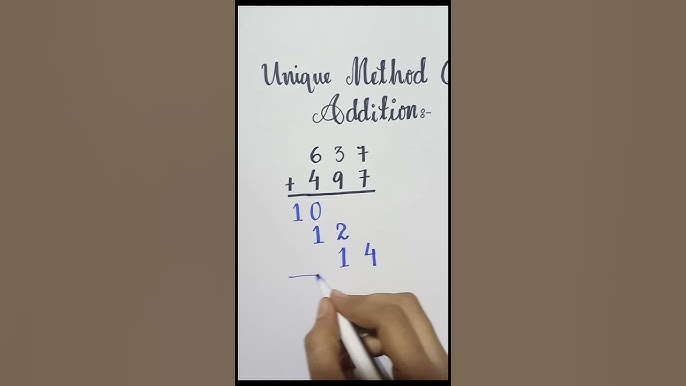 Unique Method
Addition:-
6 3 7
+ 4 9 7
1 0
1 2
1 4